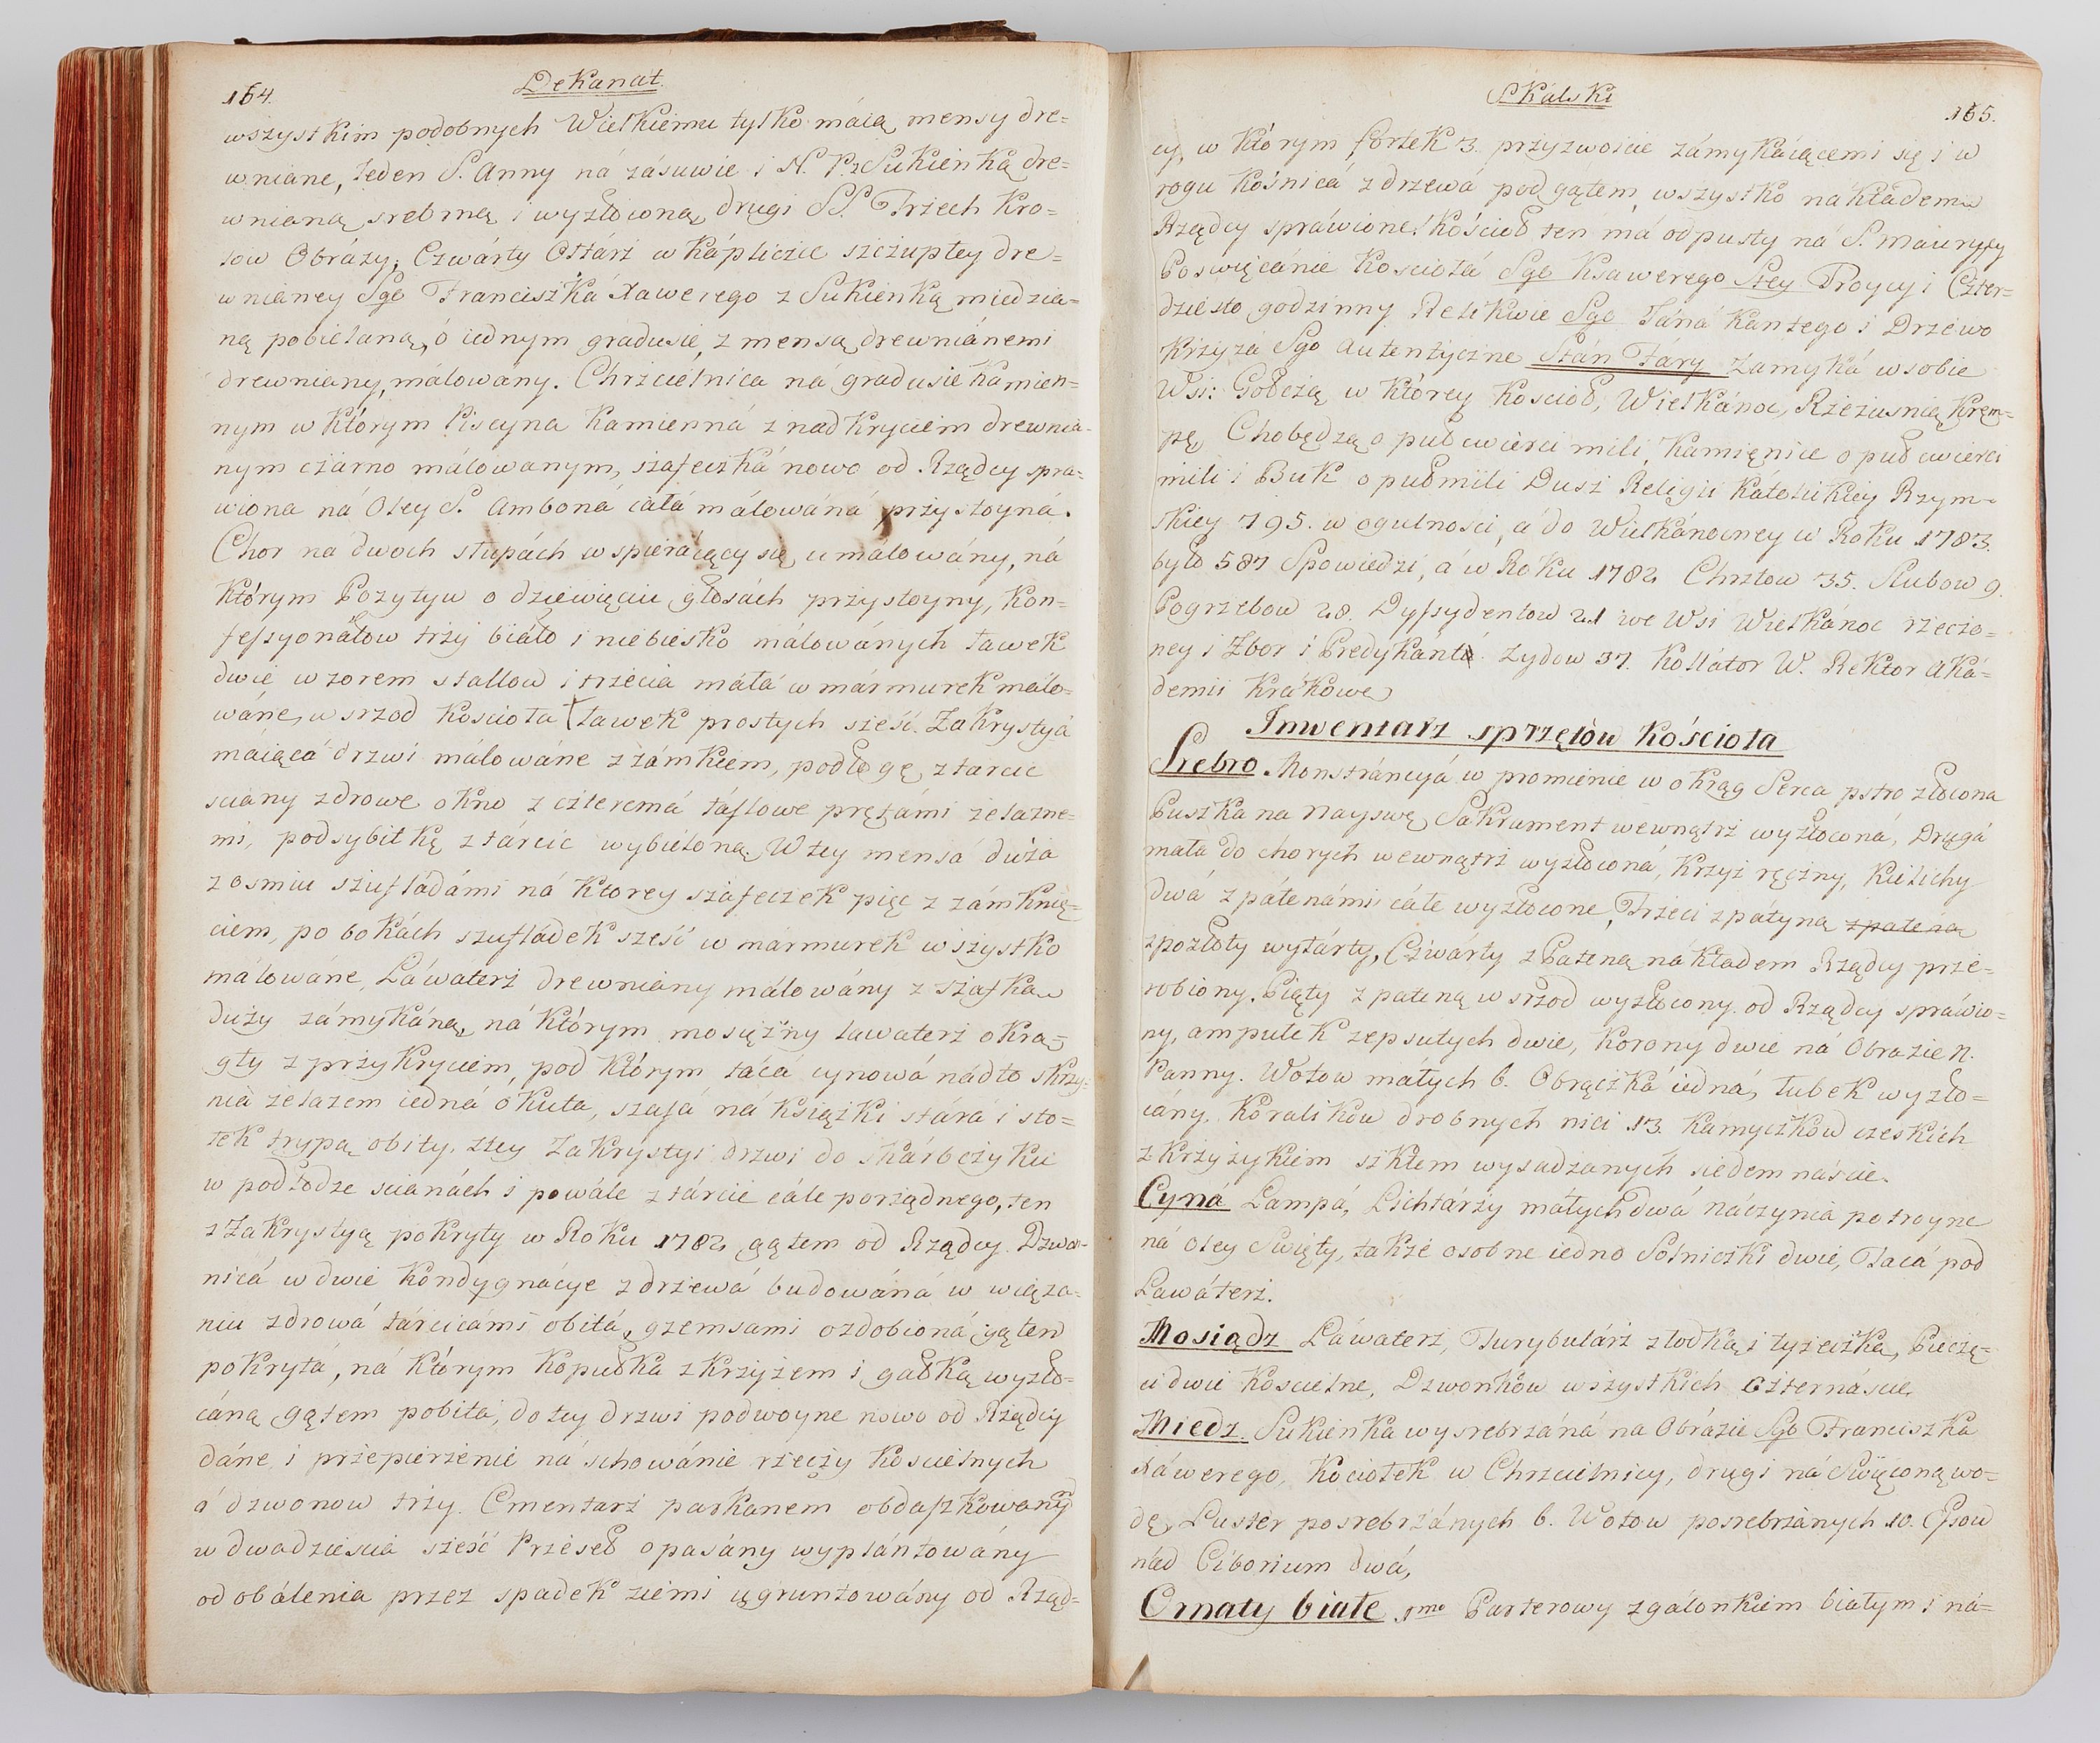 164.
Dekanat.
wszystkim podobnych Wielkiemu tylko máią mensy dre=
wniane, Ieden S. Anny ná zásuwie i N. P. z Sukienką dre=
wnianą srebrną i wyzłoconą, drugi SS. Trzech Kro=
low Obrázy, Czwárty Ołtárz w Kápliczce szczupłey dre=
wnianey Sgo Franciszká Xawerego z Sukienką miedzia=
ną pobielaną, ó iednym gradusie, z mensą drewniánemi
drewniany, málowány. Chrzcielnica ná gradusie kamien=
nym w którym Piscyna kamienná z nadkryciem drewnia=
nym czarno málowanym, szafeczká nowo od Rządcy spra=
wiona ná Oley S. Amboná cáłá málowáná przystoyná.
Chor na dwoch słupách wspieráiący się, umálowány, ná
którym Pozytyw o dziewięciu głosách przystoyny, Kon=
fessyonáłow trzy biáło i niebiesko málowánych ławek
dwie wzorem stallow i trzecia máłá w mármurek málo=
wáne, w srzod Kosciołá ławek prostych szesć. Zakrystyá
máiącá drzwi málowáne z zámkiem, podłogę z tarcic
sciany zdrowe okno z czteremá táflowe prętámi zelazne=
mi, podsybitkę z tárcic wybieloną. W tey mensá duża
z osmiu szufládámi ná ktorey szafeczek pięc z zámknię=
ciem, po bokách szufládek sześć w mármurek wszystko
málowáne, Láwáterz drewniany málowány z szafką
duży zámykáną, ná którym mosiężny lawaterz okrą=
gły z przykryciem, pod którym tácá cynowá nádto skrzy=
niá zelazem iedná okuta, szafá ná książki stárá i sto=
łek trypą obity. z tey Zakrystyi drzwi do skárbczyku
w podłodze scianách i powále z tárcic cále porządnego, ten
z Zakrystyą pokryty w Roku 1782 gątem od Rządcy. Dzwo=
nicá w dwie kondygnácye z drzewá budowáná w wiąza=
niu zdrowá tárcicámi obitá, gzemsami ozdobioná, gątem
pokrytá, ná którym kopułka z krzyżem i gałką wyzło=
cáną gątem pobitá, do tey drzwi podwoyne nowo od Rządcy
dáne i przepierzenie ná schowánie rzeczy kościelnych
á dzwonow trzy. Cmentarz parkanem obdaszkowanym
w dwadziescia sześć Przeseł opasány wyplántowány
od obálenia przez spadek ziemi ugruntowány od Rząd=
Skalski
165.
cy, w którym fortek 3. przyzwoicie zámykáiącemi się i w
rogu kośnicá z drzewá pod gątem, wszystko nákłádem
Rządcy spráwione. Kościoł ten má odpusty ná S. Maurycy
Poswięcánie kosciołá Sgo Ksawerego Stey Troycy i Czter=
dziesto godzinny. Relikwie Sgo Jáná Kantego i Drzewo
Krzyżá Sgo autentyczne Stán Fáry Zamyká w sobie
Wsi: Gołczą w którey kościoł, Wielkánoc, Rzeżusnią, Krem=
pę, Chobędzą o puł cwierci mili, Kamięnice o puł cwierci
mili i Buk o pułmili Dusz Religii Kátolickiey Rzym=
skiey 795. w ogulności, á do Wielkánocney w Roku 1783.
było 587 Spowiedzi, á w Roku 1782 Chrztow 35. Slubow 9.
Pogrzebow 28. Dyssydentow 21 we Wsi Wielkánoc rzeczo=
ney i Zbor i Predykánt. Zydow 37. Kollátor W. Rektor Aká=
demii Krákowe
Inwentarz sprzętów kościoła
Srebro. Monstráncyá w promienie w okrąg Serca pstro złocona
Puszka na Nayswę Sakrament wewnątrz wyzłoconá, Drugá
máłá do chorych wewnątrz wyzłoconá, Krzyż ręczny, Kielichy
dwá z pátenámi cále wyzłocone, Trzeci z pátyną z pateną
z pozłoty wytárty, Czwarty z Pateną nákładem Rządcy prze=
robiony. Piąty z pateną w srzod wyzłocony od Rządcy spráwio=
ny, ampułek zepsutych dwie, Korony dwie ná Obrazie N.
Panny. Wotow máłych 6. Obrączká iedná, łubek wyzło=
cány, Koralików drobnych nici 13. Kamyczków czeskich
z krzyżykiem szkłem wysadzanych siedemnáscie.
Cyná Lampá, Lichtárzy máłych dwá náczynia potroyne
ná Oley Swięty, także osobne iedno Solniczki dwie, Tacá pod
Lawáterz.
Mosiądz Láwaterz, Turybulárz z łodką i łyżeczką, Pieczę=
ci dwie kościelne, Dzwonków wszystkich czternáscie
Miedz. Sukienka wysrebrzáná na Obrázie Sgo Franciszka
Xáwerego, Kociołek w Chrzcielnicy, drugi ná Swięconą wo=
dę, Luster posrebrzánych 6. Wotow posrebrzánych 10. Gzow
nád Ciborium dwá,
Ornaty białe 1mo Parterowy z gálonkiem białym i ná=